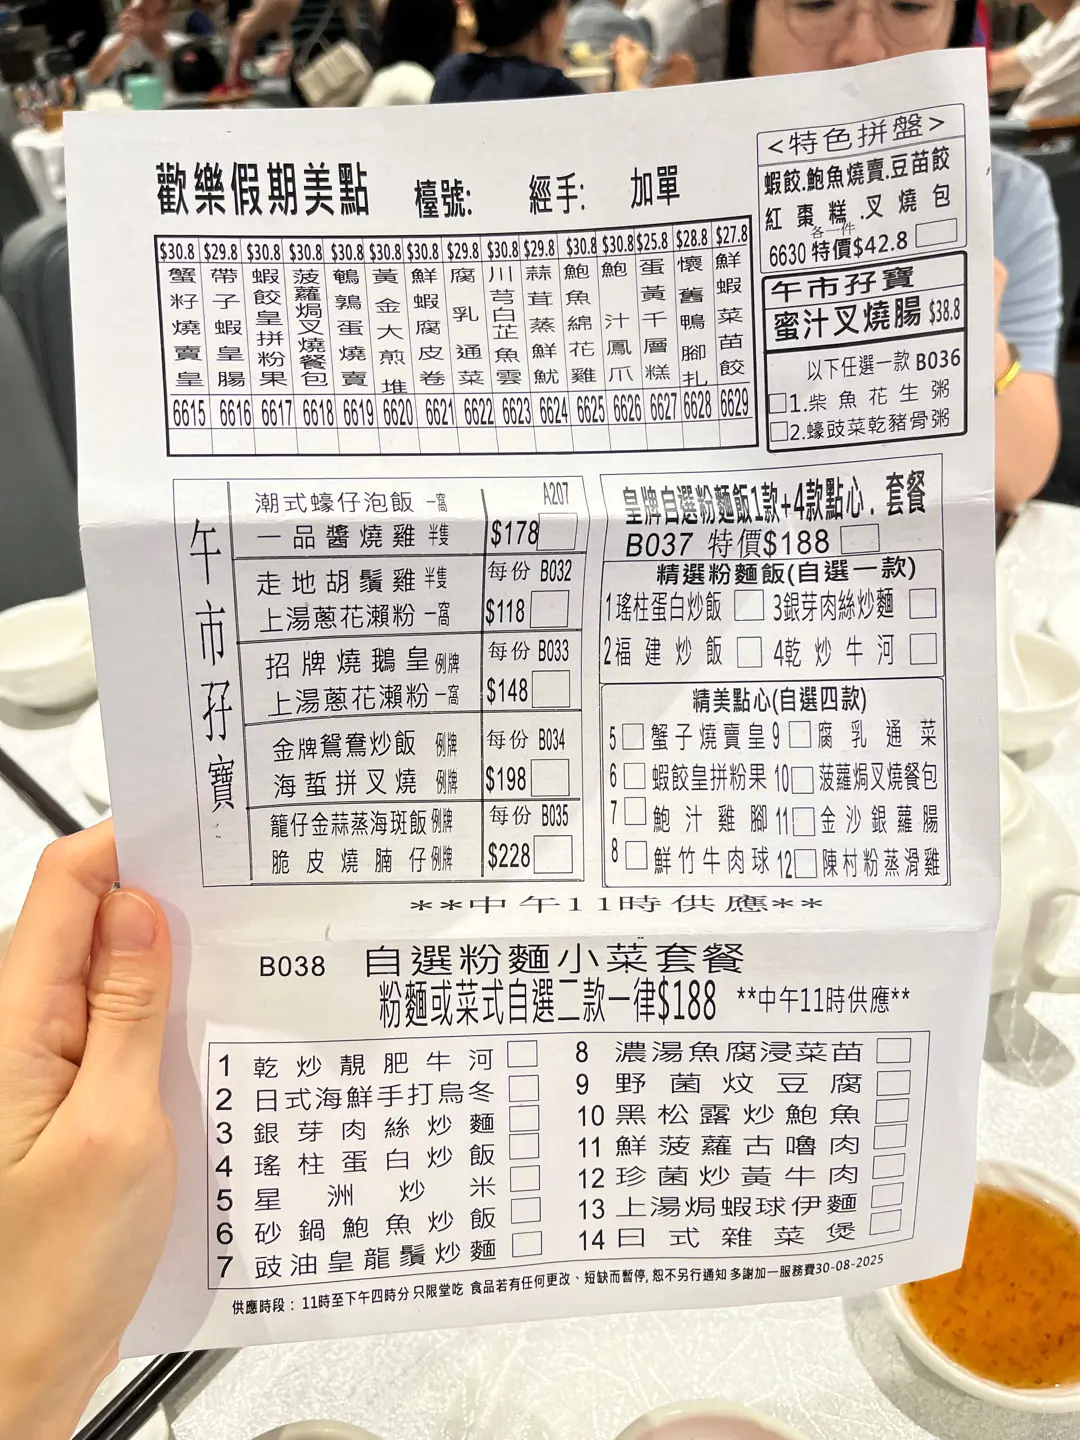 歡樂假期美點 檯號: 經手: 加單
$30.8 $29.8 $30.8 $30.8 $30.8 $30.8 $30.8 $29.8 $30.8 $29.8 $30.8 $30.8 $25.8 $28.8 $27.8
蟹籽燒賣皇
帶子蝦皇腸
蝦餃皇拼粉果
菠蘿焗叉燒餐包
鵪鶉蛋燒賣
黃金大煎堆
鮮蝦腐皮卷
腐乳通菜
川芎白芷魚雲
蒜茸蒸鮮魷
鮑魚綿花雞
鮑汁鳳爪
蛋黃千層糕
懷舊鴨腳扎
鮮蝦菜苗餃
6615 6616 6617 6618 6619 6620 6621 6622 6623 6624 6625 6626 6627 6628 6629
<特色拼盤>
蝦餃.鮑魚燒賣.豆苗餃
紅棗糕.叉燒包
各一件
6630 特價$42.8
午市孖寶
蜜汁叉燒腸 $38.8
以下任選一款 B036
1.柴魚花生粥
2.蠔豉菜乾豬骨粥
午市孖寶
潮式蠔仔泡飯 一窩 A207
一品醬燒雞 半隻 $178
走地胡鬚雞 半隻 每份 B032
上湯蔥花瀨粉 一窩 $118
招牌燒鵝皇 例牌 每份 B033
上湯蔥花瀨粉 一窩 $148
金牌鴛鴦炒飯 例牌 每份 B034
海蜇拼叉燒 例牌 $198
籠仔金蒜蒸海斑飯 例牌 每份 B035
脆皮燒腩仔 例牌 $228
皇牌自選粉麵飯1款+4款點心.套餐
B037 特價$188
精選粉麵飯(自選一款)
1瑤柱蛋白炒飯 3銀芽肉絲炒麵
2福建炒飯 4乾炒牛河
精美點心(自選四款)
5 蟹子燒賣皇 9 腐乳通菜
6 蝦餃皇拼粉果 10 菠蘿焗叉燒餐包
7 鮑汁雞腳 11 金沙銀蘿腸
8 鮮竹牛肉球 12 陳村粉蒸滑雞
**中午11時供應**
B038 自選粉麵小菜套餐
粉麵或菜式自選二款一律$188 **中午11時供應**
1 乾炒靚肥牛河
2 日式海鮮手打烏冬
3 銀芽肉絲炒麵
4 瑤柱蛋白炒飯
5 星洲炒米
6 砂鍋鮑魚炒飯
7 豉油皇龍鬚炒麵
8 濃湯魚腐浸菜苗
9 野菌炆豆腐
10 黑松露炒鮑魚
11 鮮菠蘿古嚕肉
12 珍菌炒黃牛肉
13 上湯焗蝦球伊麵
14 日式雜菜煲
供應時段：11時至下午四時分 只限堂吃 食品若有任何更改、短缺而暫停, 恕不另行通知 多謝加一服務費30-08-2025